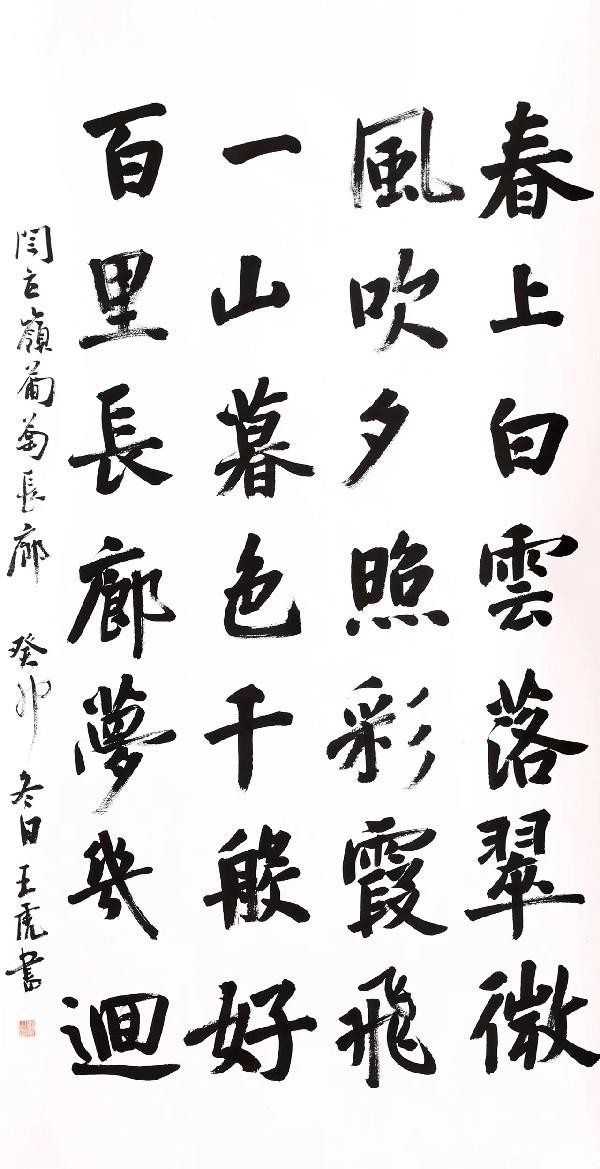 春上白雲落翠微
風吹夕照彩霞飛
一山暮色千般好
百里長廊夢幾迴
闫立嶺葡萄長廊 癸卯冬日王虎書